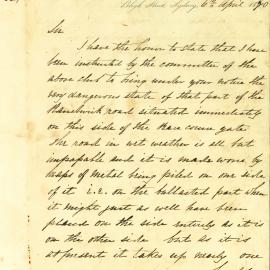 Bligh Street, Sydney, 6th April 1870
Sir
I have the honor to state that I have
been instructed by the committee of the
above club to bring under your notice the
very dangerous state of that part of the
Randwick road situated immediately
on this side of the Race course gate
The road in wet weather is all but
impassable and it is made worse by
heaps of metal being piled on one side
of it i.e. on the ballasted part when
it might just as well have been
placed on the side entirely as it is
on the other side but as it is
at present it takes up nearly one